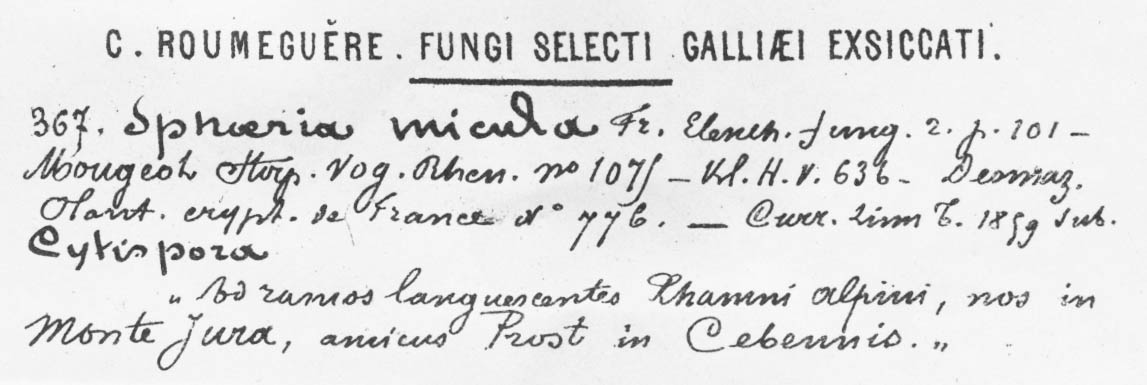 C. ROUMEGUĔRE. FUNGI SELECTI GALLIÆI EXSICCATI.
367. Sphæria micula Fr. Elench. fung. 2. p. 101 –
Mougeot Stirp. Vog. Rhen. no 1075 – Kl. H. V. 636 – Desmaz.
Plant. crypt. de France No 776. — Curr. Linn T. 1859 sub.
Cytispora
„ Ad ramos languescentes Rhamni alpini, nos in
Monte Jura, amicus Prost in Cebennis. „